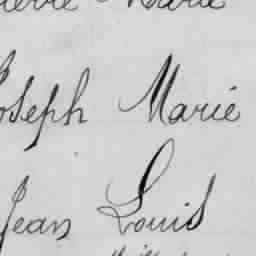 Pierre Marie
Joseph Marie
Jean Louis